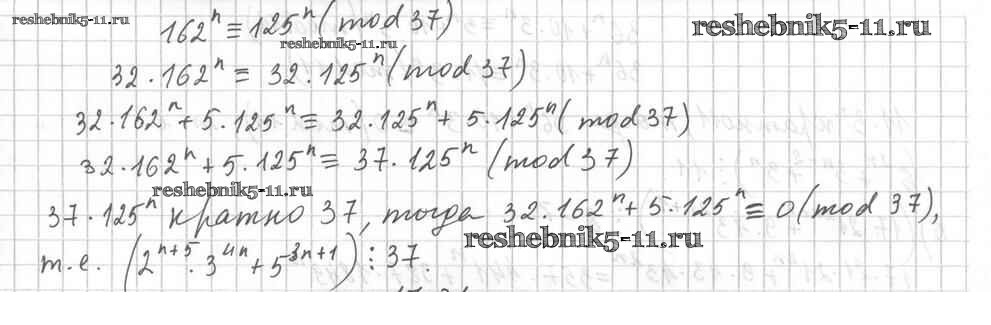 reshebnik5-11.ru
162ⁿ ≡ 125ⁿ (mod 37)
reshebnik5-11.ru
reshebnik5-11.ru
32·162ⁿ ≡ 32·125ⁿ (mod 37)
32·162ⁿ + 5·125ⁿ ≡ 32·125ⁿ + 5·125ⁿ (mod 37)
32·162ⁿ + 5·125ⁿ ≡ 37·125ⁿ (mod 37)
reshebnik5-11.ru
37·125ⁿ кратно 37, тогда 32·162ⁿ + 5·125ⁿ ≡ 0 (mod 37),
reshebnik5-11.ru
т.е. (2ⁿ⁺⁵·3⁴ⁿ + 5³ⁿ⁺¹) ⋮ 37.